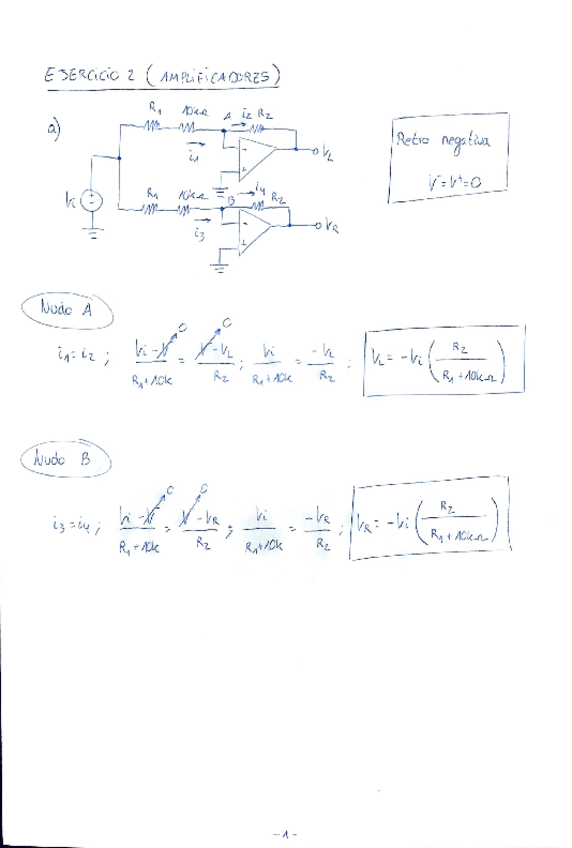 EJERCICIO 2 (AMPLIFICADORES)
a)
R1 10kΩ A i2 R2
i1
- + VL
Vi
R1 10kΩ B i4 R2
i3
- + VR
Retro negativa
V⁻=V⁺=0
Nudo A
i1=i2 ; (Vi-V⁻)/(R1+10k) = (V⁻-VL)/R2 ; Vi/(R1+10k) = -VL/R2 ; VL = -Vi (R2/(R1+10kΩ))
0 0
Nudo B
i3=i4 ; (Vi-V⁻)/(R1+10k) = (V⁻-VR)/R2 ; Vi/(R1+10k) = -VR/R2 ; VR = -Vi (R2/(R1+10kΩ))
0 0
-1-